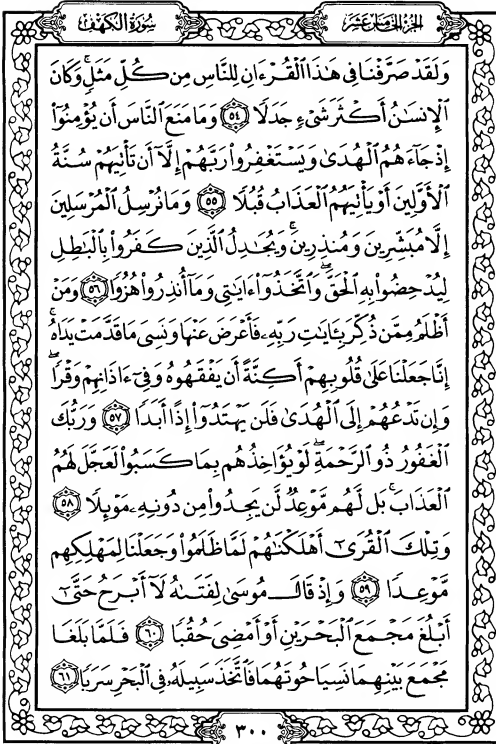 سُورَةُ الكَهْفِ
الجُزْءُ الخَامِسَ عَشَرَ
وَلَقَدْ صَرَّفْنَا فِي هَٰذَا ٱلْقُرْءَانِ لِلنَّاسِ مِن كُلِّ مَثَلٍۚ وَكَانَ
ٱلْإِنسَٰنُ أَكْثَرَ شَىْءٍ جَدَلًا ٥٤ وَمَا مَنَعَ ٱلنَّاسَ أَن يُؤْمِنُوٓا۟
إِذْ جَآءَهُمُ ٱلْهُدَىٰ وَيَسْتَغْفِرُوا۟ رَبَّهُمْ إِلَّآ أَن تَأْتِيَهُمْ سُنَّةُ
ٱلْأَوَّلِينَ أَوْ يَأْتِيَهُمُ ٱلْعَذَابُ قُبُلًا ٥٥ وَمَا نُرْسِلُ ٱلْمُرْسَلِينَ
إِلَّا مُبَشِّرِينَ وَمُنذِرِينَۚ وَيُجَٰدِلُ ٱلَّذِينَ كَفَرُوا۟ بِٱلْبَٰطِلِ
لِيُدْحِضُوا۟ بِهِ ٱلْحَقَّۖ وَٱتَّخَذُوٓا۟ ءَايَٰتِى وَمَآ أُنذِرُوا۟ هُزُوًا ٥٦ وَمَنْ
أَظْلَمُ مِمَّن ذُكِّرَ بِـَٔايَٰتِ رَبِّهِۦ فَأَعْرَضَ عَنْهَا وَنَسِىَ مَا قَدَّمَتْ يَدَاهُۚ
إِنَّا جَعَلْنَا عَلَىٰ قُلُوبِهِمْ أَكِنَّةً أَن يَفْقَهُوهُ وَفِىٓ ءَاذَانِهِمْ وَقْرًاۖ
وَإِن تَدْعُهُمْ إِلَى ٱلْهُدَىٰ فَلَن يَهْتَدُوٓا۟ إِذًا أَبَدًا ٥٧ وَرَبُّكَ
ٱلْغَفُورُ ذُو ٱلرَّحْمَةِۖ لَوْ يُؤَاخِذُهُم بِمَا كَسَبُوا۟ لَعَجَّلَ لَهُمُ
ٱلْعَذَابَۚ بَل لَّهُم مَّوْعِدٌ لَّن يَجِدُوا۟ مِن دُونِهِۦ مَوْئِلًا ٥٨
وَتِلْكَ ٱلْقُرَىٰٓ أَهْلَكْنَٰهُمْ لَمَّا ظَلَمُوا۟ وَجَعَلْنَا لِمَهْلِكِهِم
مَّوْعِدًا ٥٩ وَإِذْ قَالَ مُوسَىٰ لِفَتَىٰهُ لَآ أَبْرَحُ حَتَّىٰٓ
أَبْلُغَ مَجْمَعَ ٱلْبَحْرَيْنِ أَوْ أَمْضِىَ حُقُبًا ٦٠ فَلَمَّا بَلَغَا
مَجْمَعَ بَيْنِهِمَا نَسِيَا حُوتَهُمَا فَٱتَّخَذَ سَبِيلَهُۥ فِى ٱلْبَحْرِ سَرَبًا ٦١
٣٠٠